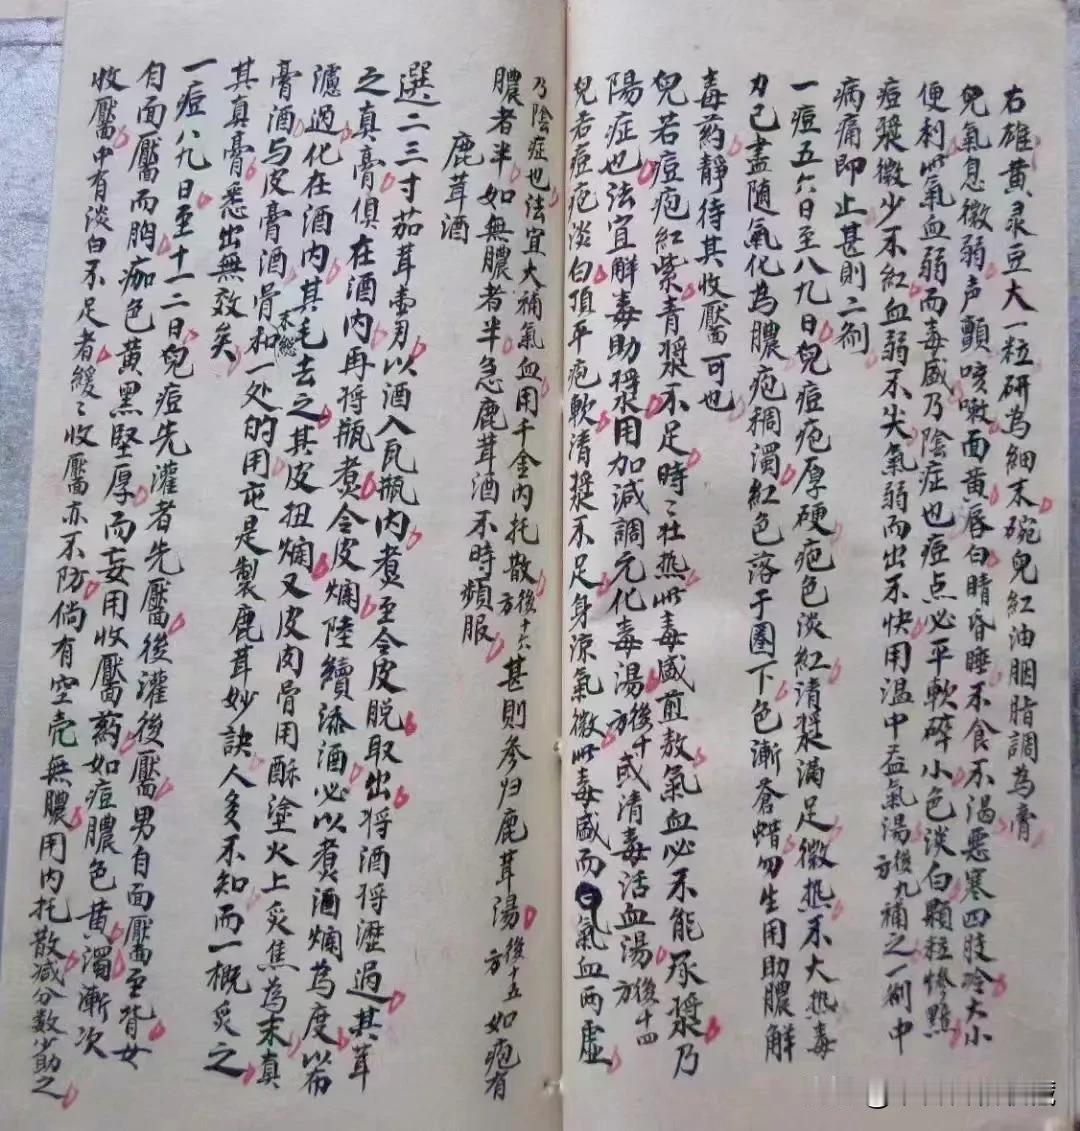 右雄黄彔豆大一粒研為細末碗兒紅油胭脂調為膏
兒氣息微弱声顫咳嗽面黄唇白睛昏睡不食不渴惡寒四肢冷大小
便利此氣血弱而毒盛乃陰症也痘点必平軟碎小色淡白顆粒慘黯
痘漿微少不紅血弱不尖氣弱而出不快用溫中益氣湯後九方補之一劑中
病痛即止甚則二劑
一痘五六日至八九日兒痘疤厚硬疤色淡紅清漿滿足微热不大热毒
力已盡随氣化為膿疤稠濁紅色落于圈下色漸蒼蜡勿生用助膿解
毒药靜待其收靨可也
兒若痘疤紅紫青漿不足時〻壮热此毒盛煎熬氣血必不能承漿乃
陽症也法宜解毒助漿用加減調元化毒湯後十方或清毒活血湯後十四方
兒若痘疤淡白頂平疤軟清漿不足身涼氣微此毒盛而白氣血两虛
乃陰症也法宜大補氣血用千金内托散後十六方甚則參归鹿茸湯後十五方如疤有
膿者半如無膿者半急鹿茸酒不時頻服
鹿茸酒
選二三寸茄茸壹月以酒入瓦瓶内煮至令皮脱取出将酒将瀝過其茸
之真膏俱在酒内再将瓶煮令皮爛陸續添酒必以者酒爛為度以布
濾過化在酒内其毛去之其皮扭爛又皮肉骨用酥塗火上炙焦為末真
膏酒与皮膏酒骨和末総一处的用屯是製鹿茸妙訣人多不知而一概炙之
其真膏悉出無效矣
一痘八九日至十一二日兒痘先灌者先靨後灌後靨男自面靨至背女
自面靨而胸痂色黄黑堅厚而妄用收靨药如痘膿色黄濁漸次
收靨中有淡白不足者緩〻收靨亦不防倘有空壳無膿用内托散减分数少助之